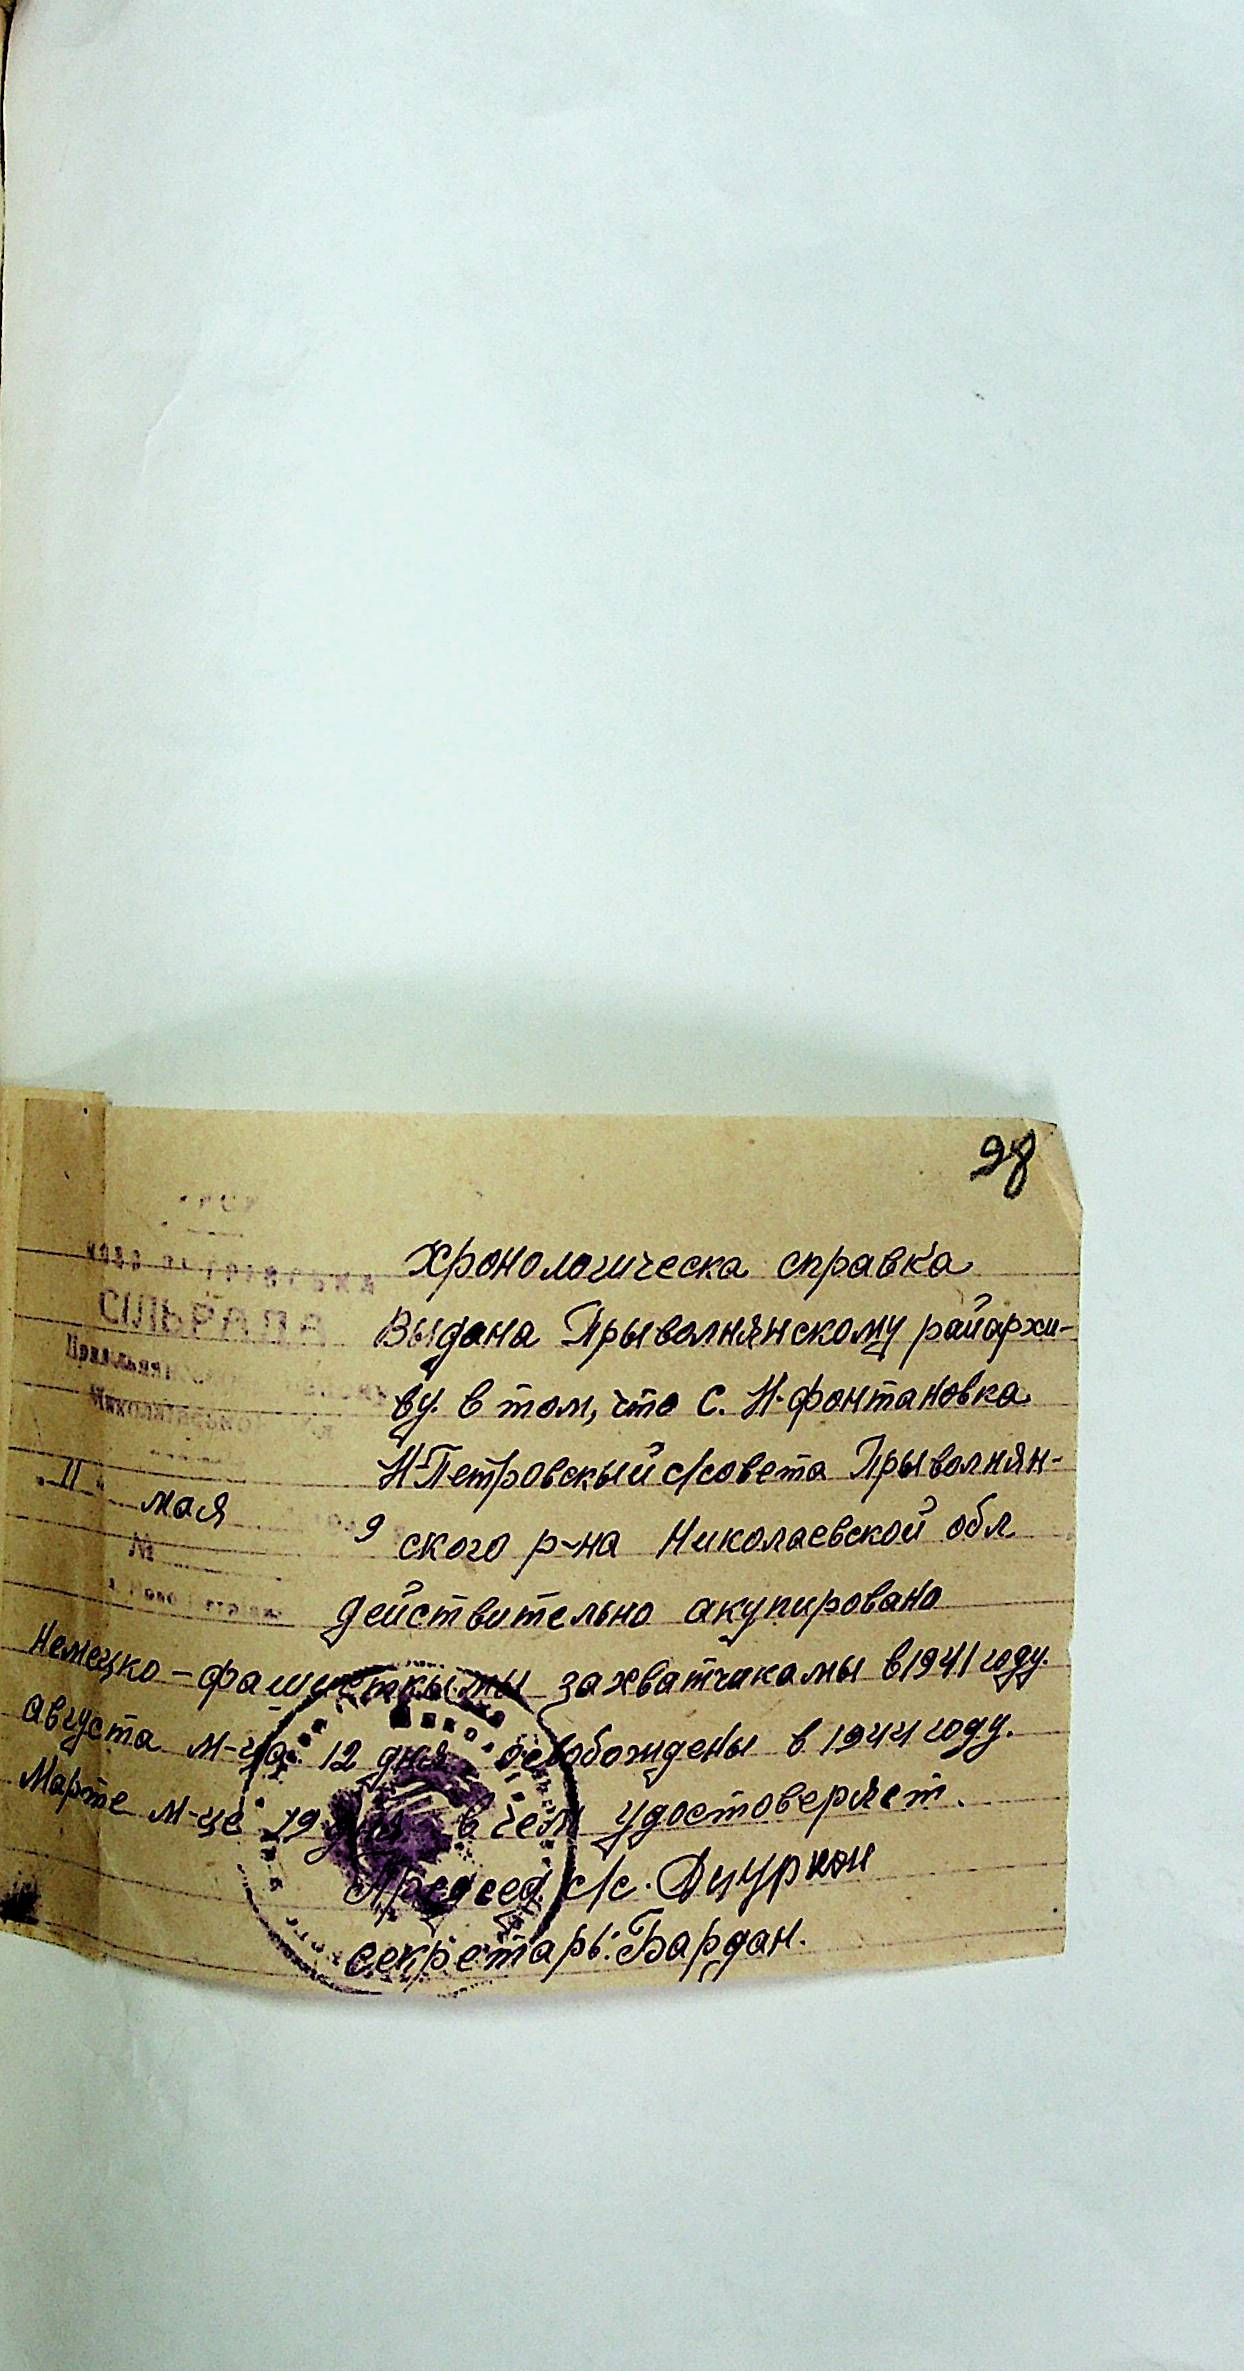 98
СІЛЬРАДА
"11" мая
№
Хронологическа справка
Выдана Прыволнянскому райархи-
ву. в том, что с. Н-фонтановка
Н-Петровскый с/совета Прыволнян-
ского р-на Николаевской обл
действительно акупировано
Немецко-фашисткымы захватчикамы в 1941 году.
августа м-ца 12 дня освобождены в 1944 году.
Марте м-це 19 дня в чем удостоверяет.
Председ. с/с.
секретарь: Бардан.